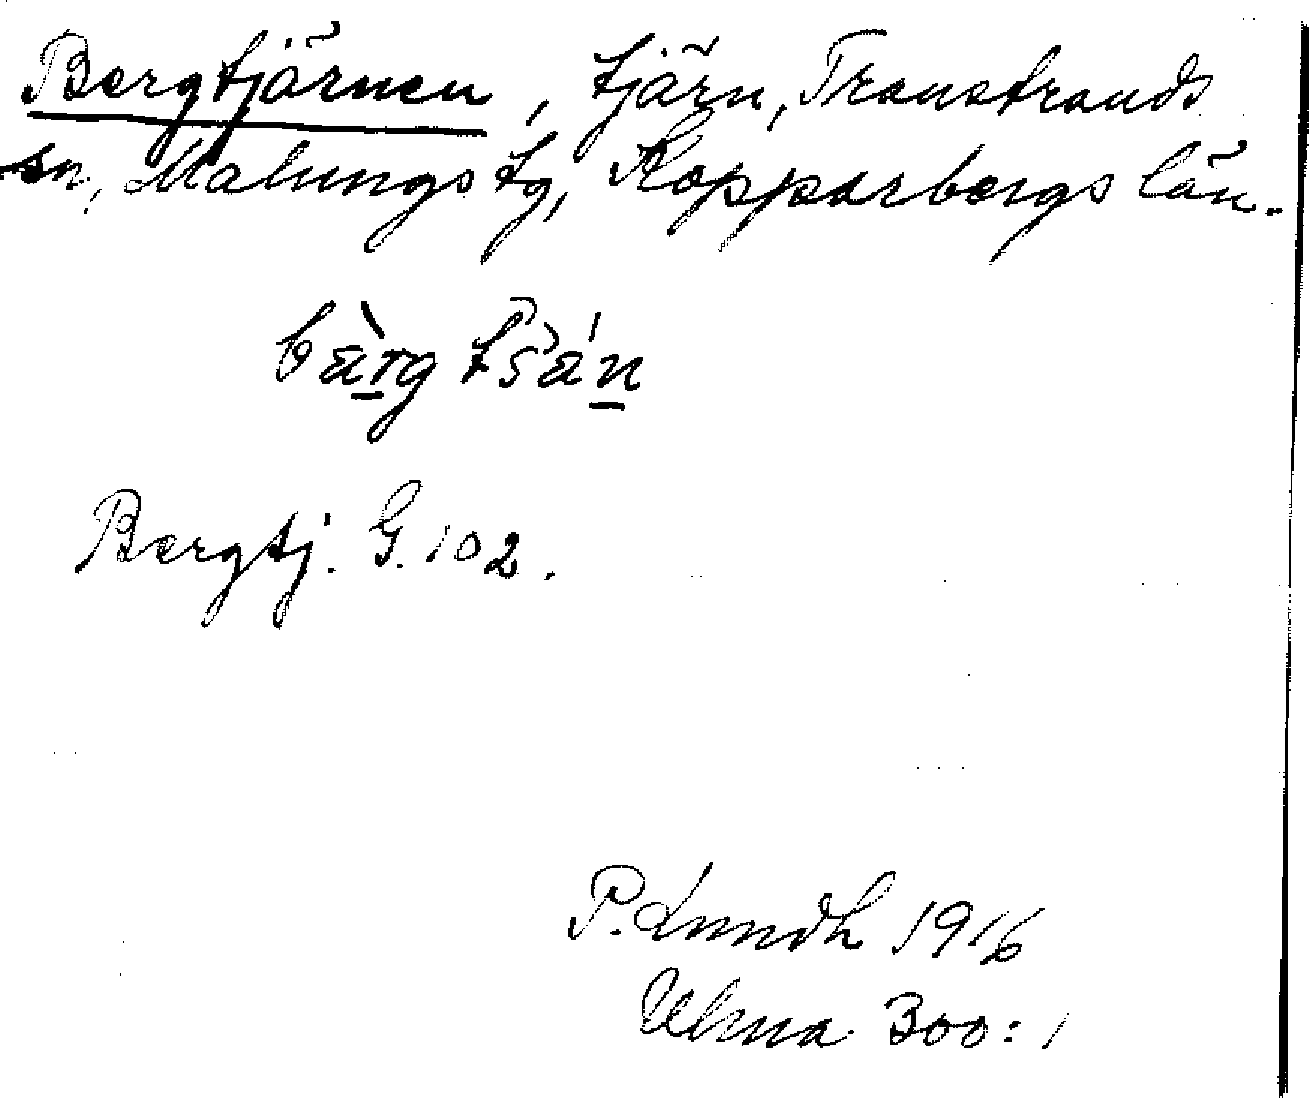 Bergtjärnen, tjärn, Transtrands
sn, Malungs tg, Kopparbergs län.
Bergtj. G. 102.
P. Lundh 1916
Ulma 300:1